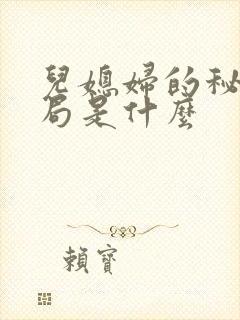 兒媳婦的秘
局是什麼
賴寶